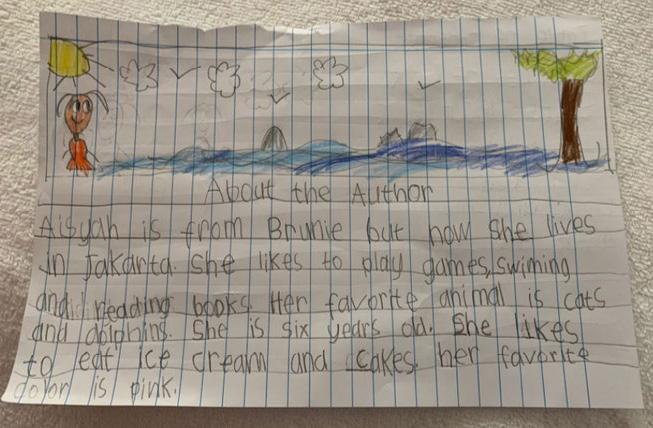 About the Author
Aisyah is from Brunie but now she lives
in Jakarta. She likes to play games, swiming
and reading books. Her favorite animal is cats
and dolphins. She is six years old. She likes
to eat ice cream and cakes. her favorite
color is pink.